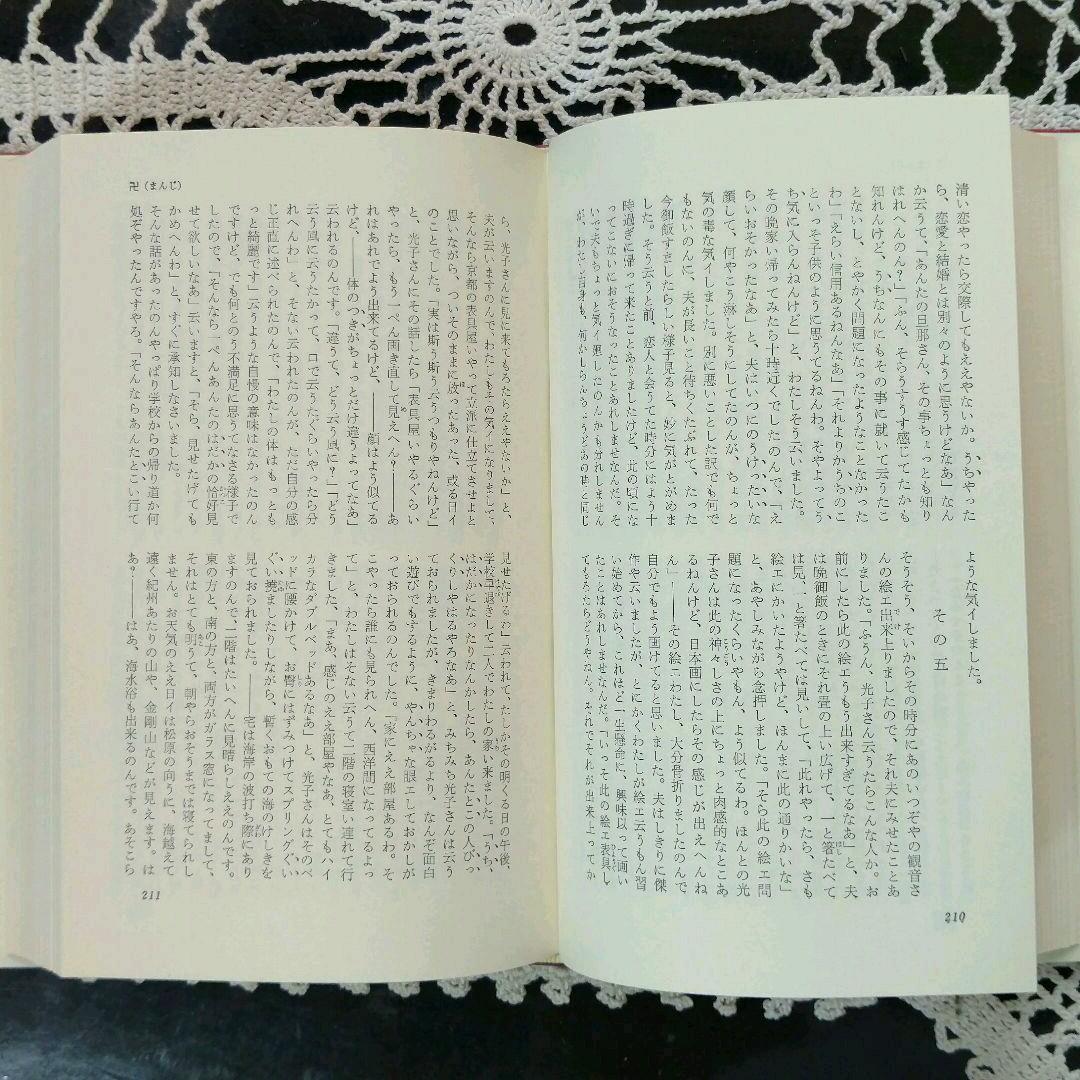 清い恋やったら交際してもええやないか。うちやった
ら、恋愛と結婚とは別々のように思うけどなあ」なん
か云うて、あんたの旦那さん、その事ちょっとも知り
はれへんのん？」「ふん、そらうすうす感じてたかも
知れんけど、うちなんにもその事に就いて云うたこ
とないし、とやかく問題になったようなことなかった
わ」「えらい信用あるねんなあ」「それよりかうちのこ
といっそ子供のように思うてるねんわ。そやよってう
ち気に入らんねんけど」と、わたしそう云いました。
その晩家い帰ってみたら十時近くでしたのんで、「え
らいおそかったなあ」と、夫はいつにのうけったいな
顔して、何やこう淋しそうにしてたのんが、ちょっと
気の毒な気イしました。別に悪いことした訳でも何で
もないのんに、夫が長いこと待ちくたぶれて、たった
今御飯すましたらしい様子見ると、妙に気がとがめま
した。そう云うと前、恋人と会うてた時分にはよう十
時過ぎに帰って来たことありましたけど、此の頃にな
ってこないにおそうなったことあれしませなんだ。そ
いで夫もちょっと気イ廻したのんかも分れしません
が、わたし自身も、何かしらんちょうどあの時と同じ
ような気イしました。
その五
そうそう、そいからその時分にあのいつぞやの観音さ
んの絵エ出来上りましたので、それ夫にみせたことあ
りました。「ふうん、光子さん云うたらこんな人か。お
前にしたら此の絵エうもう出来すぎてるなあ」と、夫
は晩御飯のときにそれ畳の上い広げて、一と箸たべて
は見、一と箸たべては見いして、「此れやったら、さも
絵エにかいたようやけど、ほんまに此の通りかいな」
と、あやしみながら念押しました。「そら此の絵エ問
題になったくらいやもん、よう似てるわ。ほんとの光
子さんは此の神々しさの上にちょっと肉感的なとこあ
るねんけど、日本画にしたらその感じが出えへんね
ん」――その絵エわたし、大分骨折りましたのんで
自分でもよう画けてると思いました。夫はしきりに傑
作や云いました。とにかくわたしが絵エ云うもん習
い始めてから、これほど一生懸命に、興味以って画い
たことはあれしませなんだ。「いっそ此の絵エ表具し
てもろたらどうやねん。それでそれが出来上ってか
210
卍（まんじ）
ら、光子さんに見に来てもろたらええやないか」と、
夫が云いますのんでわたしもその気イになりまして、
そんなら京都の表具屋いやって立派に仕立てさせよと
思いながら、ついそのままに放ったあった、或る日イ
のことでした。「実は斯う斯う云うつもりやねんけど」
と、光子さんにその話したら「表具屋いやるぐらい
やったら、もう一ぺん画き直して見えへん？――あ
れはあれでよう出来てるけど、――顔はよう似てる
けど、――体のつきがちょっとだけ違うよってなあ」
云われるのんです。「違うて、どう云う風に？」「どう
云う風に云うたかって、口で云うたぐらいやったら分
れへんわ」と、そない云われたのんが、ただ自分の感
じ正直に述べられたのんで、「わたしの体はもっとも
っと綺麗です」云うような自慢の意味はなかったのん
ですけど、でも何とのう不満足に思うてなさる様子で
したので、「そんなら一ぺんあんたのはだかの恰好見
せて欲しいなあ」云いますと、「そら、見せたげても
かめへんわ」と、すぐに承知しなさいました。
そんな話があったのんやっぱり学校からの帰り道か何
処ぞやったんですやろ。「そんならあんたとこい行て
見せたげるわ」云われて、たしかその明くる日の午後、
学校早退きして二人でわたしの家い来ました。「うち、
はだかになったりなんかしたら、あんたとこの人びっ
くりしやはるやろなあ」と、みちみち光子さんは云う
ておられましたが、きまりわるがるより、なんぞ面白
い遊びでもするように、やんちゃな眼エしておかしが
っておられるのんでした。「家にええ部屋あるわ。そ
こやったら誰にも見られへん、西洋間になってるよっ
て」と、わたしはそない云うて二階の寝室い連れて行
きました。「まあ、感じのええ部屋やなあ、とてもハイ
カラなダブルベッドあるなあ」と、光子さんはそのベ
ッドに腰かけて、お臀にはずみつけてスプリングぐい
ぐい撓ましたりしながら、暫くおもての海のけしきを
見ておられました。――宅は海岸の波打ち際にあり
ますのんで、二階はたいへんに見晴らしええのんです。
東の方と、南の方と、両方がガラス窓になってまして、
それはとても明うて、朝やらおそうまでは寝てられし
ません。お天気のええ日イは松原の向うに、海越えて
遠く紀州あたりの山や、金剛山などが見えます。は
あ？――はあ、海水浴も出来るのんです。あそこら
211